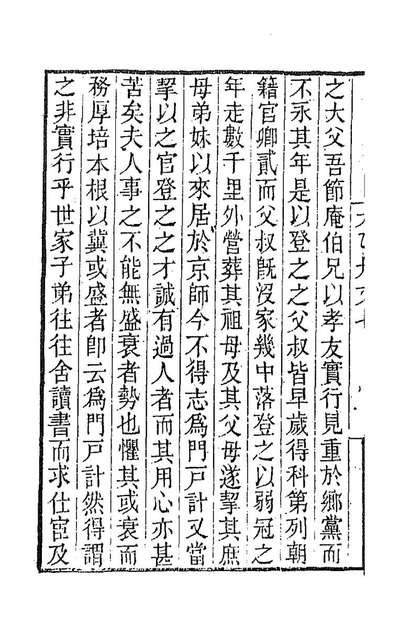 之大父吾節庵伯兄以孝友實行見重於鄉黨而
不永其年是以登之之父叔皆早歲得科第列朝
籍官卿貳而父叔旣沒家幾中落登之以弱冠之
年走數千里外營葬其祖母及其父母遂挈其庶
母弟妹以來居於京師今不得志爲門戸計又當
挈以之官登之之才誠有過人者而其用心亦甚
苦矣夫人事之不能無盛衰者勢也懼其或衰而
務厚培本根以冀或盛者卽云爲門戸計然得謂
之非實行乎世家子弟往往舍讀書而求仕宦及